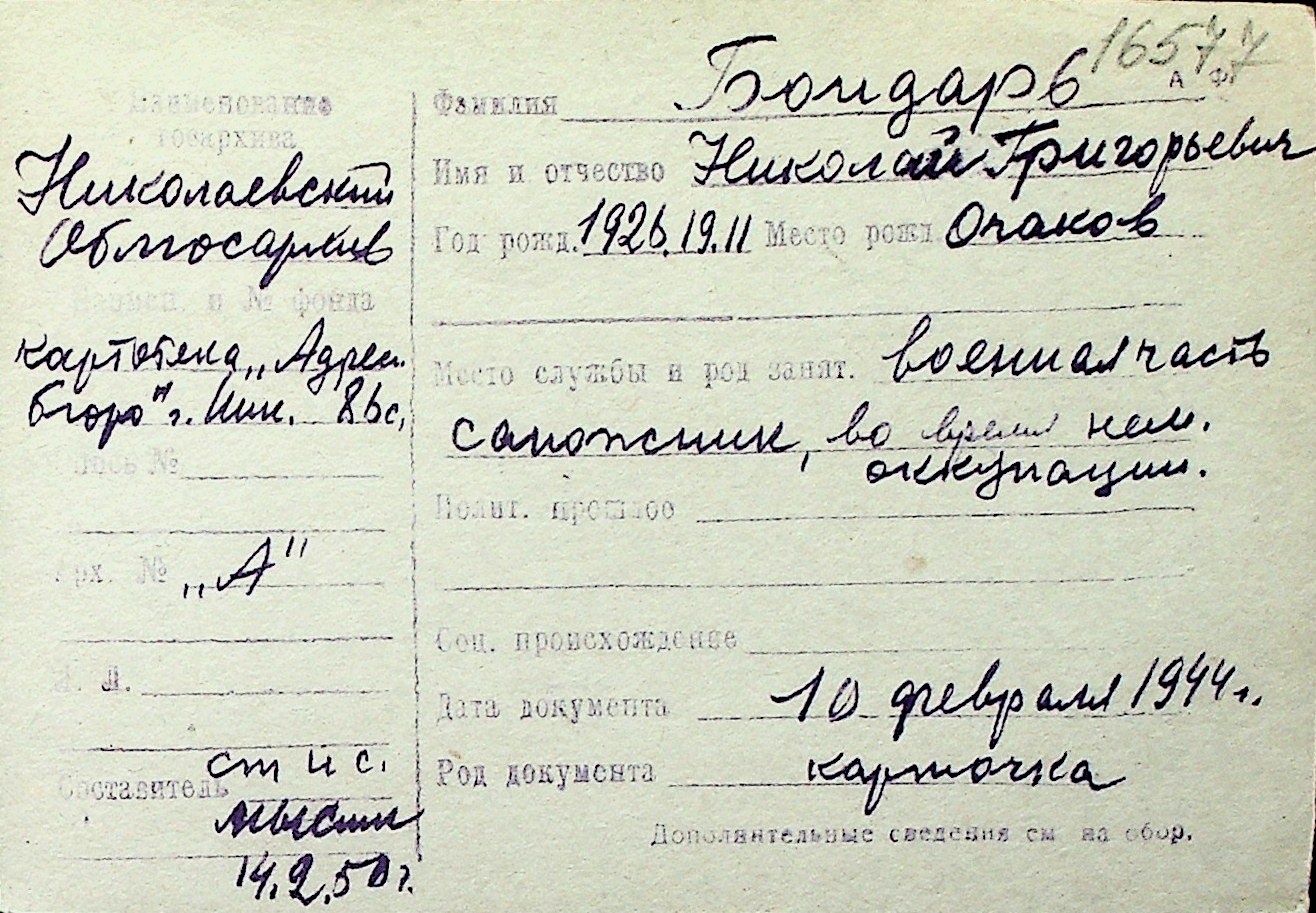 16577
А Ф
Наименование
госархива
Николаевский
Облгосархив
Наимен. и № фонда
картотека „Адресн.
бюро" г. Ник. 86с.
Опись №
Арх. № „А"
Л. Л.
Составитель ст н с.
14.2.50 г.
Фамилия Бондарь
Имя и отчество Николай Григорьевич
Год рожд. 1926.19.11 Место рожд Очаков
Место службы и род занят. военная часть
сапожник, во время нем.
оккупации.
Полит. прошлое
Соц. происхождение
Дата документа 10 февраля 1944 г.
Род документа карточка
Дополнительные сведения см на обор.